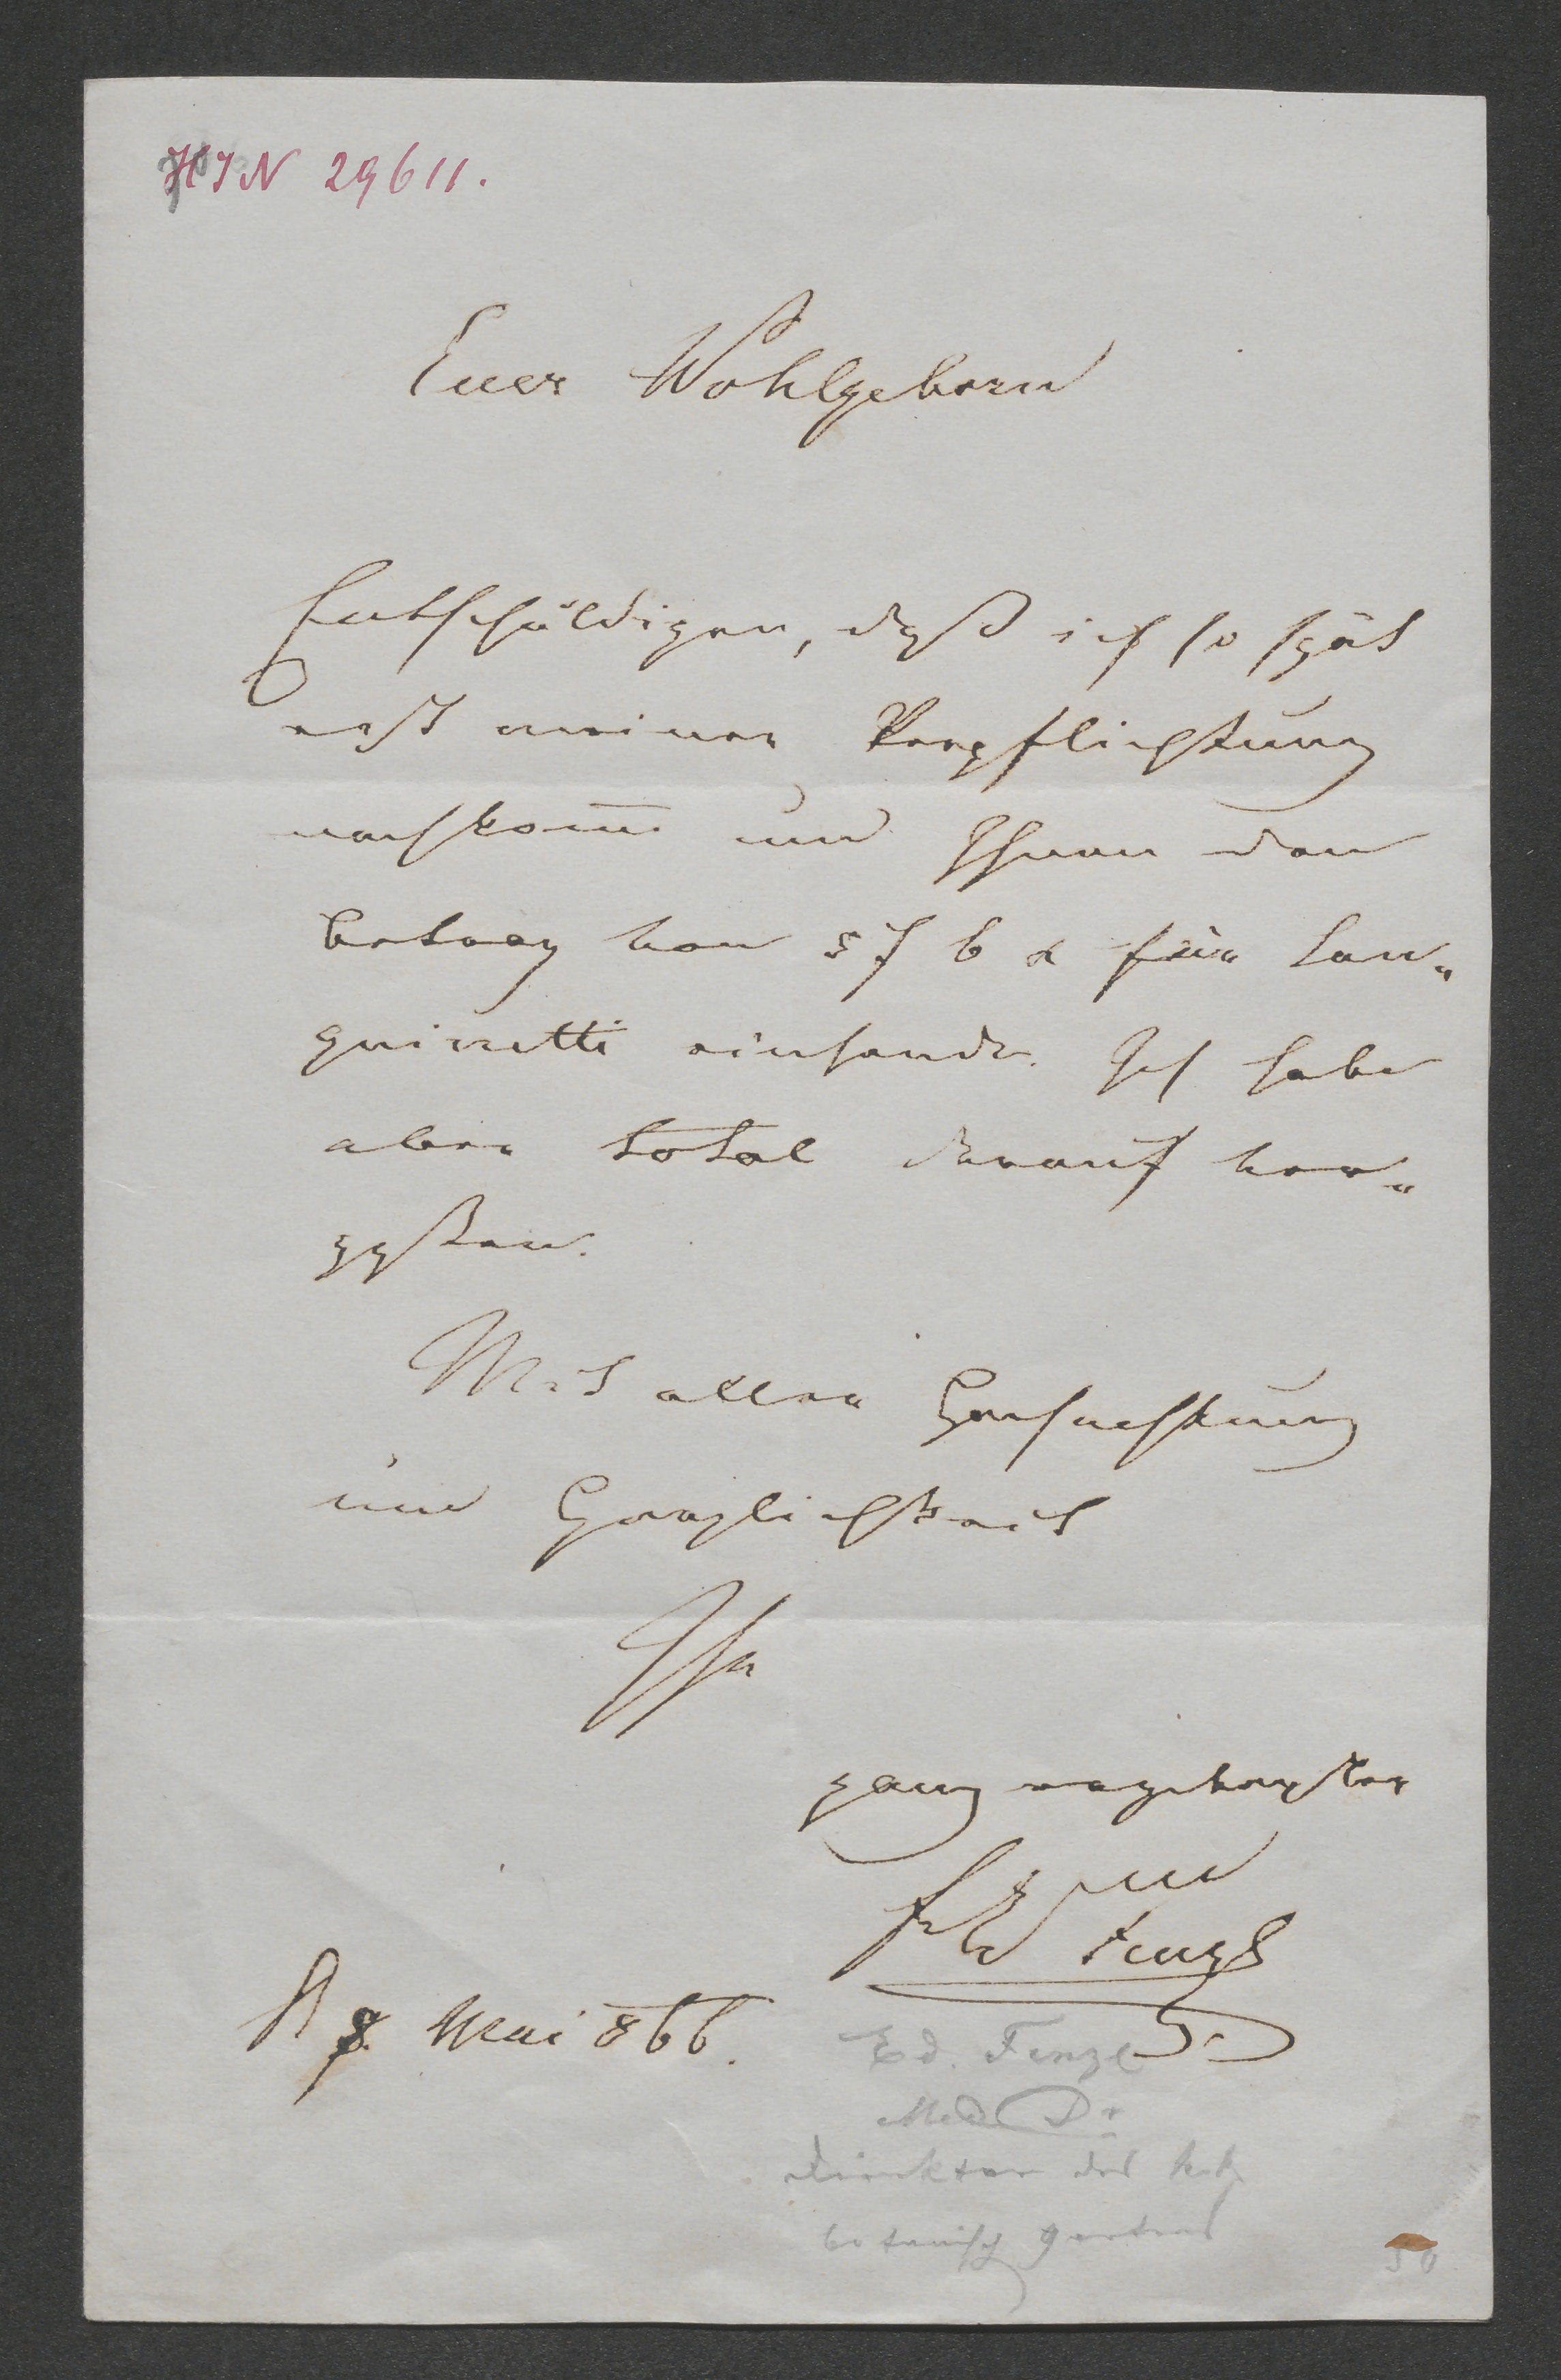 HIN 29611.
Euer Wohlgeborn
Entschuldigen, daß ich so spät
erst meiner Verpflichtung
nachkom̄e und Ihnen den
Betrag von 5 f 6 x für San„
quirretti einsende. Ich habe
aber total darauf ver„
gessen.
Mit aller Hochachtung
und Herzlichkeit
Ihr
ganz ergebenster
Fenzl
8. Mai 866.
Ed. Fenzl
Med Dr
Direktor des k. k.
botanisch Gartens